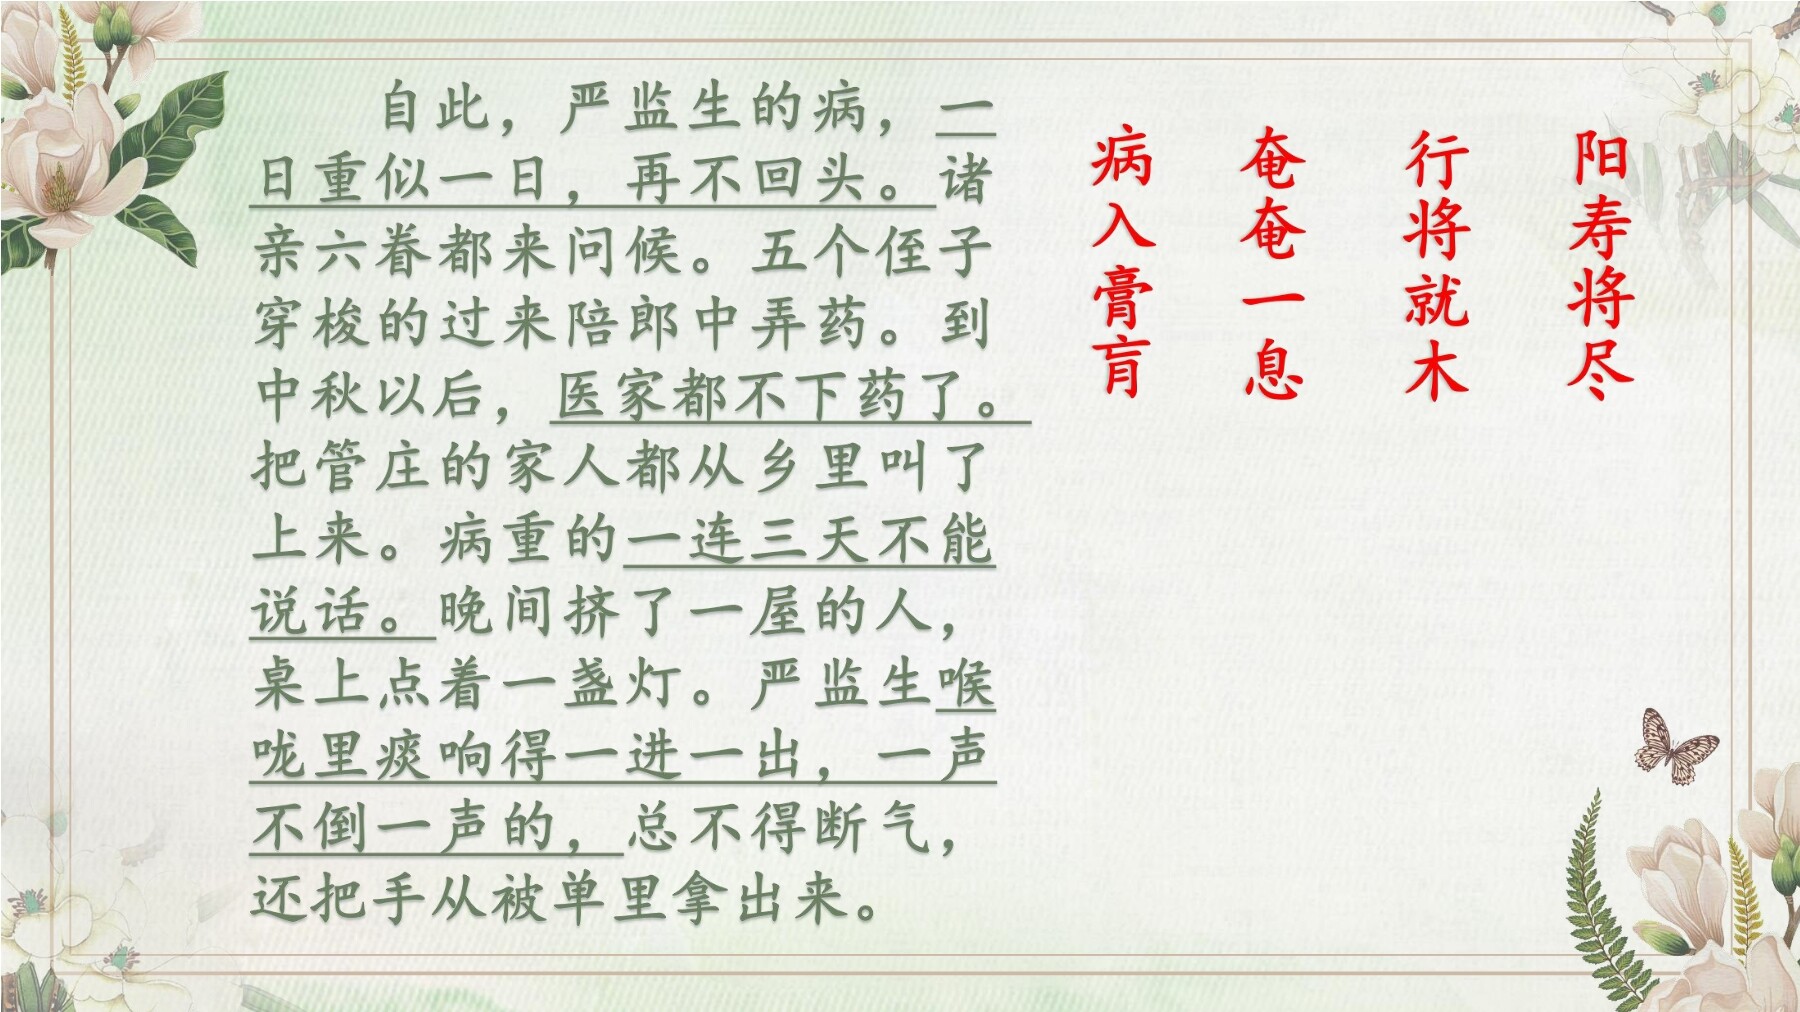 自此，严监生的病，一
日重似一日，再不回头。诸
亲六眷都来问候。五个侄子
穿梭的过来陪郎中弄药。到
中秋以后，医家都不下药了。
把管庄的家人都从乡里叫了
上来。病重的一连三天不能
说话。晚间挤了一屋的人，
桌上点着一盏灯。严监生喉
咙里痰响得一进一出，一声
不倒一声的，总不得断气，
还把手从被单里拿出来。
病入膏肓
奄奄一息
行将就木
阳寿将尽